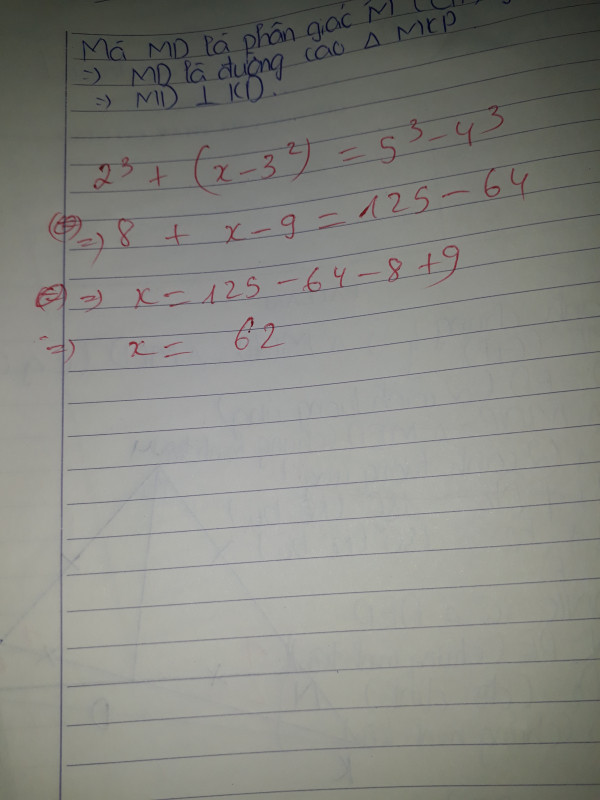 Mà MD là phân giác M
=> MD là đường cao Δ MKP
=> MD ⊥ KD.
2³ + (x - 3²) = 5³ - 4³
=> 8 + x - 9 = 125 - 64
=> x = 125 - 64 - 8 + 9
=> x = 62